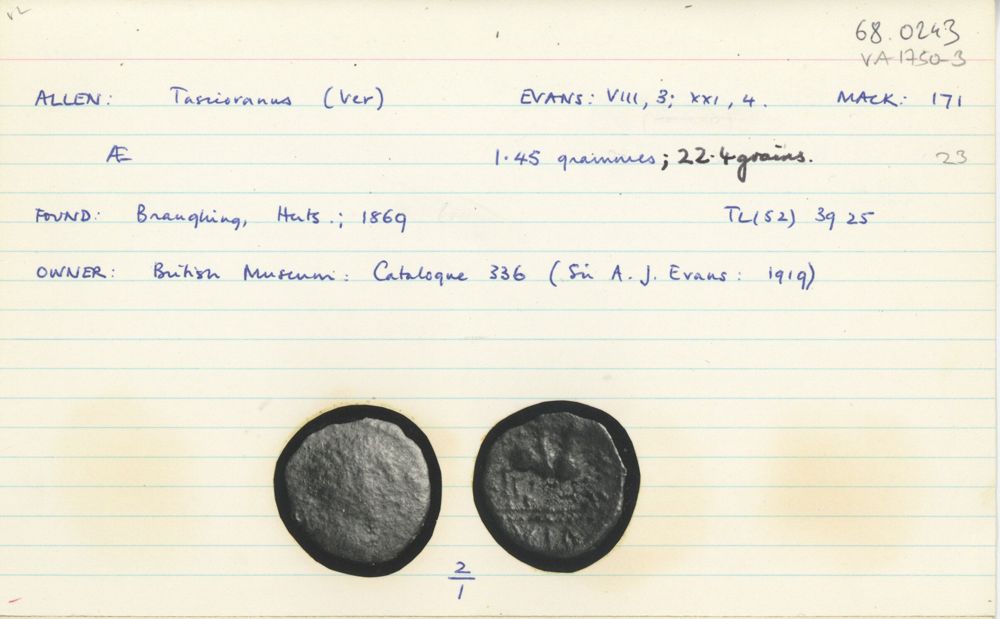 v2
68.0243
VA1750-3
ALLEN: Tasciovanus (Ver) EVANS: VIII, 3; XXI, 4. MACK: 171
Æ 1.45 grammes; 22.4 grains. 23
FOUND: Braughing, Herts.; 1869 TL(52) 39 25
OWNER: British Museum: Catalogue 336 (Sir A. J. Evans: 1919)
2
1